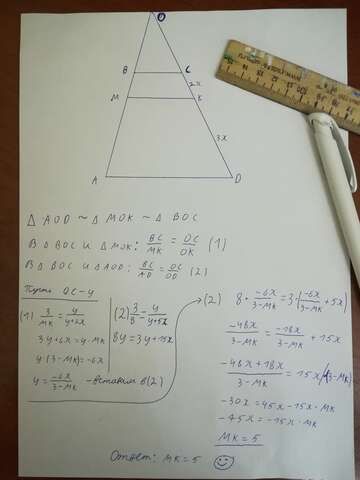 O
B
C
2x
M
K
3x
A
D
△ AOD ~ △ MOK ~ △ BOC
В △ BOC и △ MOK: BC/MK = OC/OK (1)
В △ BOC и △ AOD: BC/AD = OC/OD (2)
Пусть OC - y
(1) 3/MK = y/(y+2x)
3y+6x = y·MK
y(3-MK) = -6x
y = -6x/(3-MK) - вставим в (2)
(2) 3/8 = y/(y+5x)
8y = 3y+15x
(2) 8 · -6x/(3-MK) = 3·(-6x/(3-MK) + 5x)
-48x/(3-MK) = -18x/(3-MK) + 15x
(-48x+18x)/(3-MK) = 15x /·(3-MK)
-30x = 45x - 15x·MK
-45x = -15x·MK
MK = 5
Ответ: MK = 5